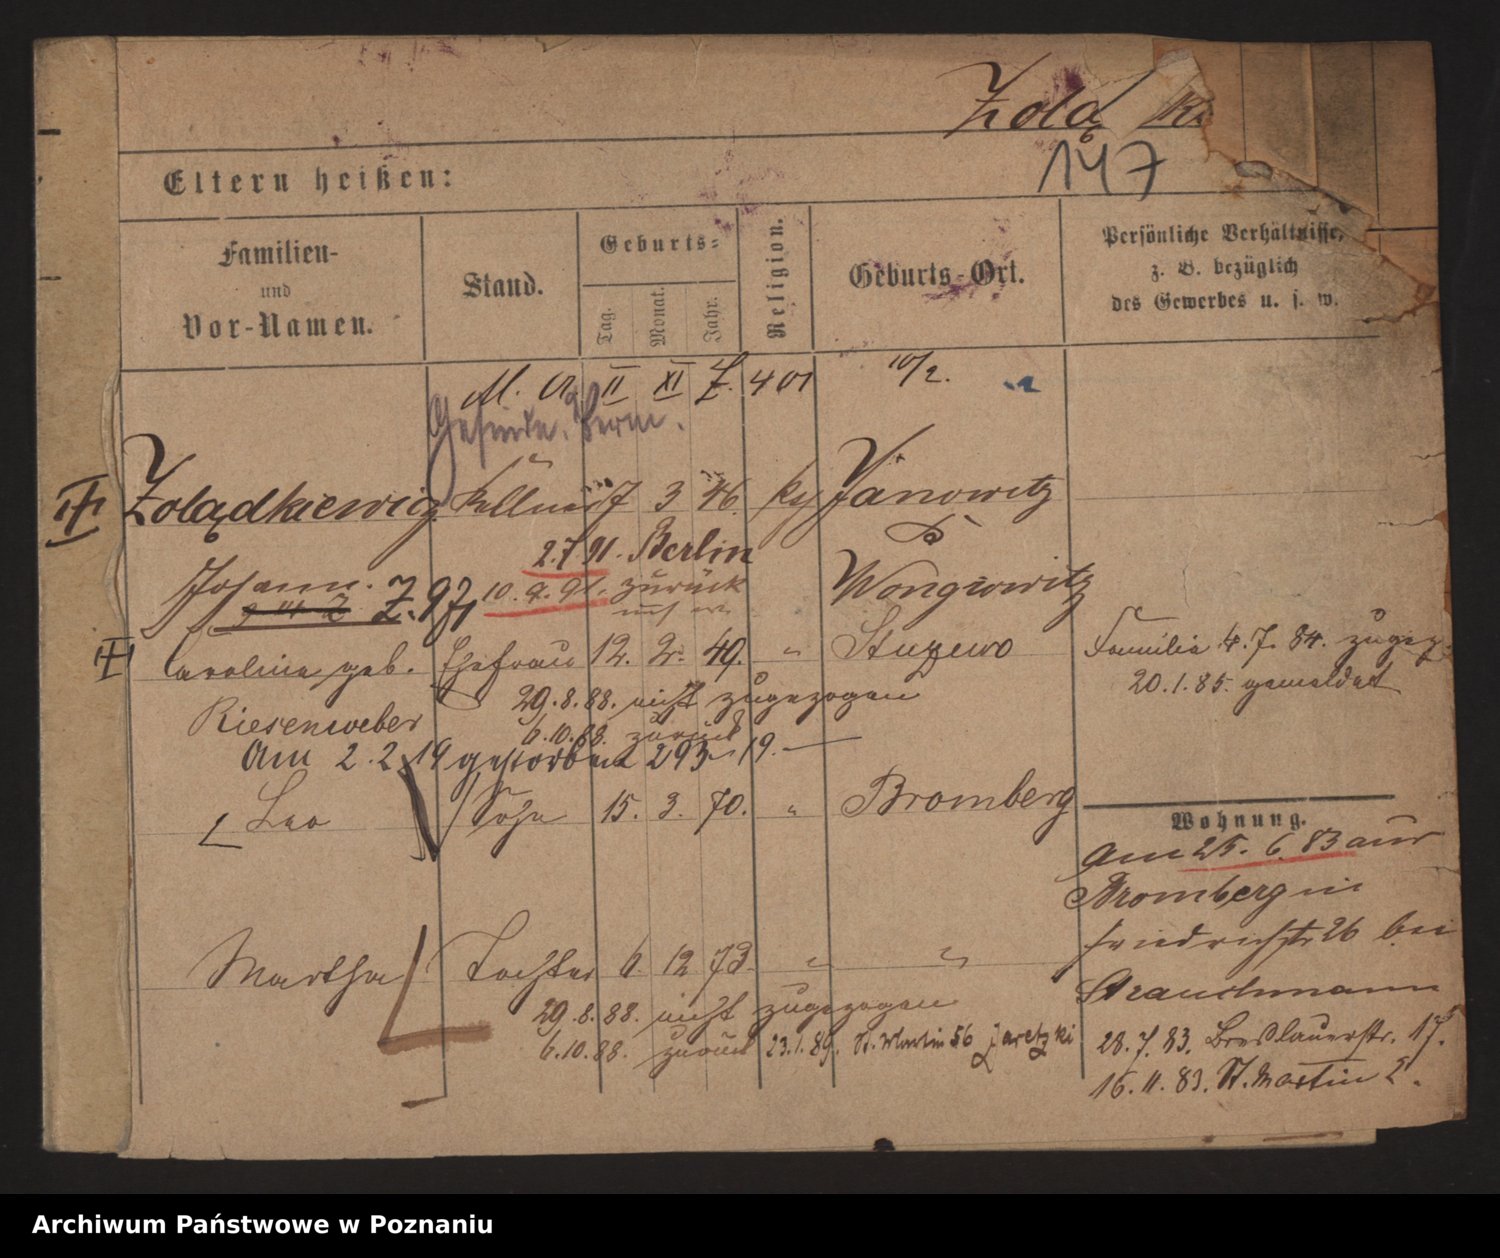 Żolą ki
147
Eltern heißen:
Familien-
und
Vor-Namen.
Stand.
Geburts-
Tag.
Monat.
Jahr.
Religion.
Geburts-Ort.
Persönliche Verhältnisse,
z. B. bezüglich
des Gewerbes u. s. w.
II XI Z. 401 10/2.
Gesinde. Verm.
Żolądkiewicz Kellner 7 3 46. Janowitz
2.7.91. Berlin
Johann. Z. 10.9.91. zurück Wongrowitz
Caroline geb. Ehefrau 12. 2. 49. " Stuzewo
Familie 4.7.84. zugez.
20.1.85. gemeldet
29.8.88. nicht zugezogen
Riesenweber 6.10.88. zurück
Am 2.2.19 gestorben 293 19.
Leo Sohn 15. 3. 70. " Bromberg
Wohnung.
Am 25. 6. 83 aus
Bromberg in
Friedrichstr 26 bei
Strauchmann
Martha Tochter 6. 12 73. " "
29.8.88. nicht zugezogen
6.10.88. zurück 23.1.89. St. Martin 56 Jaretzki
28.7.83. Breslauerstr. 17.
16.11.83. St. Martin 2.
Archiwum Państwowe w Poznaniu